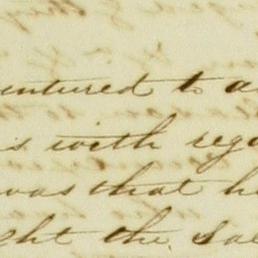 entured to a
is with rega
was that h
ght the sal